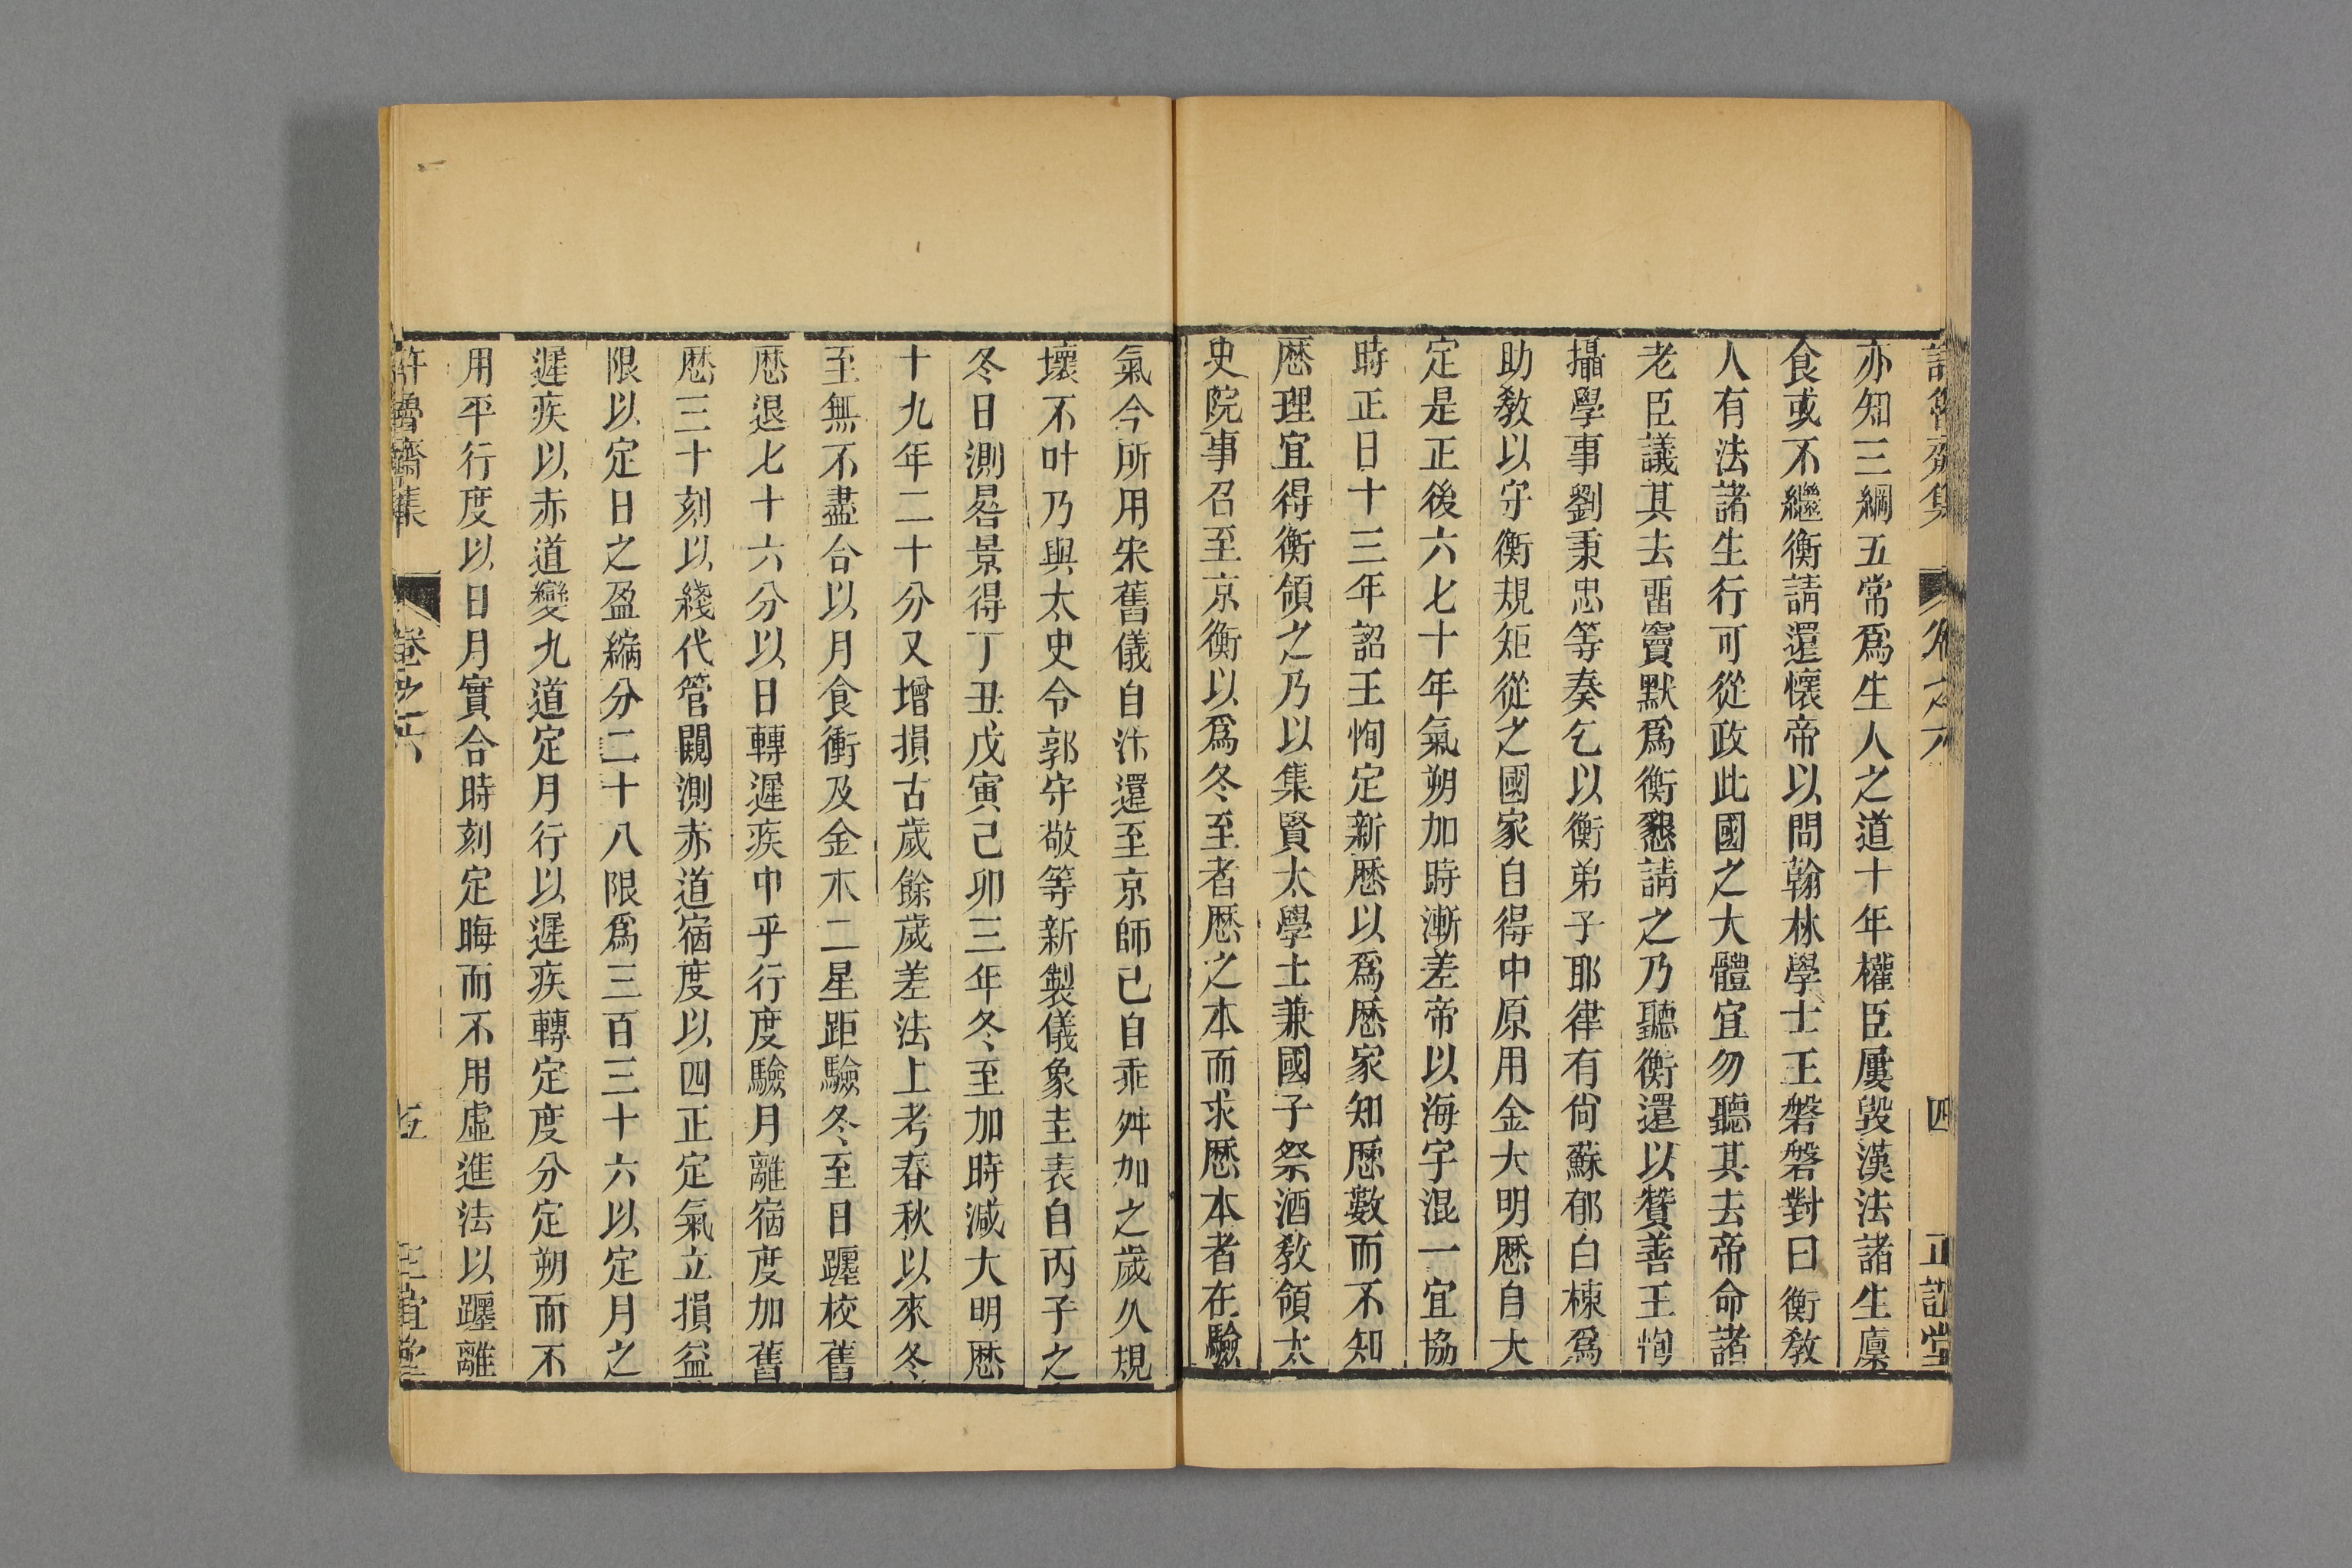 許魯齋集 卷之六 四 正誼堂
亦知三綱五常爲生人之道十年權臣屢毀漢法諸生廩
食或不繼衡請還懷帝以問翰林學士王磐磐對曰衡教
人有法諸生行可從政此國之大體宜勿聽其去帝命諸
老臣議其去畱竇默爲衡懇請之乃聽衡還以贊善王恂
攝學事劉秉忠等奏乞以衡弟子耶律有尙蘇郁白棟爲
助教以守衡規矩從之國家自得中原用金大明厯自大
定是正後六七十年氣朔加時漸差帝以海宇混一宜協
時正日十三年詔王恂定新厯以爲厯家知厯數而不知
厯理宜得衡領之乃以集賢大學士兼國子祭酒教領太
史院事召至京衡以爲冬至者厯之本而求厯本者在驗
氣今所用宋舊儀自汴還至京師已自乖舛加之歲久規
壞不叶乃與太史令郭守敬等新製儀象圭表自丙子之
冬日測晷景得丁丑戊寅己卯三年冬至加時減大明厯
十九年二十分又增損古歲餘歲差法上考春秋以來冬
至無不盡合以月食衝及金木二星距驗冬至日躔校舊
厯退七十六分以日轉遲疾中平行度驗月離宿度加舊
厯三十刻以綫代管闚測赤道宿度以四正定氣立損益
限以定日之盈縮分二十八限爲三百三十六以定月之
遲疾以赤道變九道定月行以遲疾轉定度分定朔而不
用平行度以日月實合時刻定晦而不用虛進法以躔離
許魯齋集 卷之六 五 正誼堂